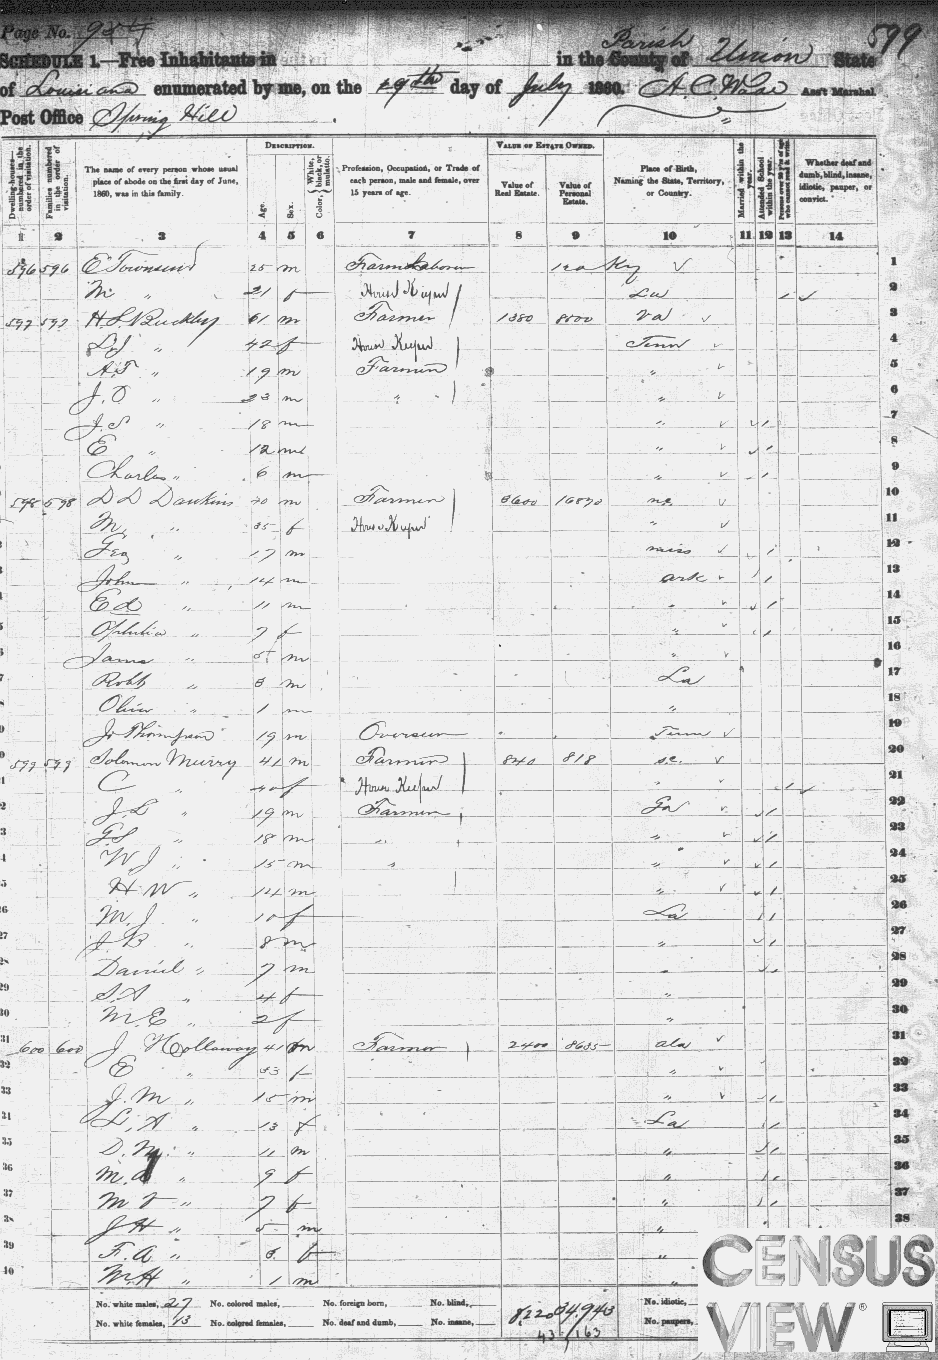 Page No. 924
599
SCHEDULE 1.—Free Inhabitants in in the County of Parish Union State
of Louisiana enumerated by me, on the 29th day of July 1860. Ass't Marshal.
Post Office Spring Hill
Dwelling-houses—numbered in the order of visitation.
Families numbered in the order of visitation.
The name of every person whose usual place of abode on the first day of June, 1860, was in this family.
DESCRIPTION.
Age.
Sex.
Color, White, black, or mulatto.
Profession, Occupation, or Trade of each person, male and female, over 15 years of age.
VALUE OF ESTATE OWNED.
Value of Real Estate.
Value of Personal Estate.
Place of Birth, Naming the State, Territory, or Country.
Married within the year.
Attended School within the year.
Persons over 20 y'rs of age who cannot read & write.
Whether deaf and dumb, blind, insane, idiotic, pauper, or convict.
1 2 3 4 5 6 7 8 9 10 11 12 13 14
596 596 E Townsend 25 m Farm Laborer Ky 1
M " 21 f House Keeper La 2
597 597 H. S. Buckley 61 m Farmer 1380 8500 Va 3
L J " 42 f House Keeper Tenn 4
A. F " 19 m Farmer " 5
J. O " 23 m " " " 6
J. S " 18 m " 7
E " 12 m " 8
Charles " 6 m " 9
598 598 D D Dawkins m Farmer 3600 16870 nc 10
M, " 35 f House Keeper " 11
Geo " 17 m miss 12
John " 14 m ark 13
Ed " 11 m " 14
Ophelia " 7 f " 15
James " 5 m " 16
Robt " 3 m La 17
Oliver " 1 m " 18
Jo Thompson 19 m Overseer Tenn 19
599 599 Solomon Murry 41 m Farmer 840 818 sc. 20
C " 40 f House Keeper " 21
J. L " 19 m Farmer Ga 22
G. S " 18 m " " 23
W J " 15 m " " 24
H W " 14 m " 25
M. J. " 10 f La 26
J. B " 8 m " 27
Daniel " 7 m 28
S. A " 4 f " 29
M. E " 2 f " 30
600 600 J Hollaway 41 m Farmer 2400 8635 ala 31
E " 33 f " 32
J. M " 15 m " 33
L, A " 13 f La 34
D. M. " 11 m " 35
M. A " 9 f " 36
" 7 f " 37
J H " 5 m " 38
F. A " 3 f " 39
W. H " 1 m " 40
No. white males, 27 No. colored males, No. foreign born, No. blind, No. idiotic,
No. white females, 13 No. colored females, No. deaf and dumb, No. insane, No. paupers,
8220 34943
43 163
CENSUS
VIEW®